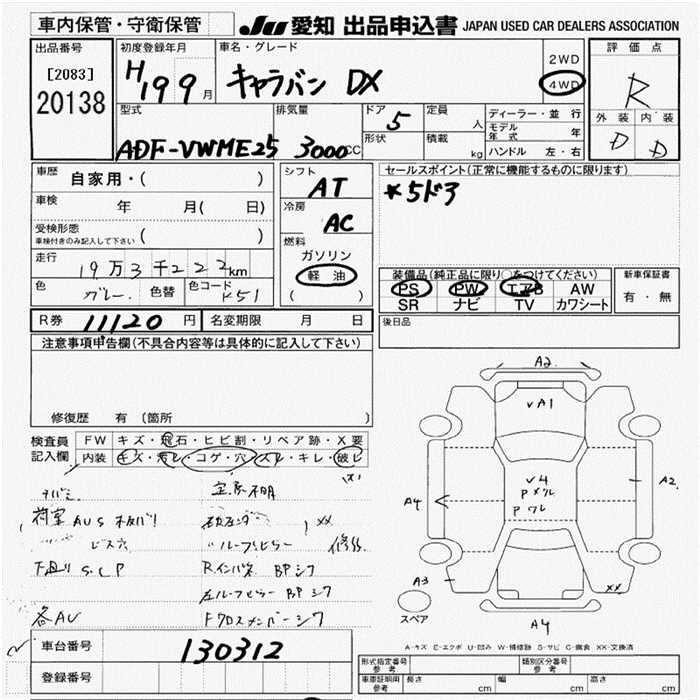 車内保管・守衛保管
JU 愛知 出品申込書 JAPAN USED CAR DEALERS ASSOCIATION
出品番号
[2083]
20138
初度登録年月
H19 9月
車名・グレード
キャラバン DX
2WD
4WD
評価点
R
外装 内装
D D
型式
ADF-VWME25
排気量
3000cc
ドア
5
形状
定員
人
積載
kg
ディーラー・並行
モデル年式 年
ハンドル 左・右
車歴
自家用・( )
車検
年 月( 日)
受検形態
車検付きのみ記入して下さい ( )
走行
19万3千222km
色
グレー
色替
色コード
K51
シフト
AT
冷房
AC
燃料
ガソリン
軽油
( )
セールスポイント(正常に機能するものに限ります)
*5ドア
装備品(純正品に限り○をつけてください)
PS PW エアB AW
SR ナビ TV カワシート
新車保証書
有・無
R券 11120円
名変期限 月 日
後日品
注意事項申告欄(不具合内容等は具体的に記入して下さい)
修復歴 有(箇所
検査員記入欄
FW キズ・飛石・ヒビ割・リペア跡・X要
内装 キズ・汚レ・コゲ・穴・スレ・キレ・破レ
荷室
ビス穴
下廻り S.C.P
各AU
XX
修正
A2
VA1
V4
A4
A2
A3
XX
A4
スペア
A-キズ E-エクボ U-凹み W-補修跡 S-サビ C-腐食 XX-交換済
車台番号 130312
登録番号
形式指定番号 参考
類別区分番号 参考
車庫証明用 参考
長さ cm
幅 cm
高さ cm